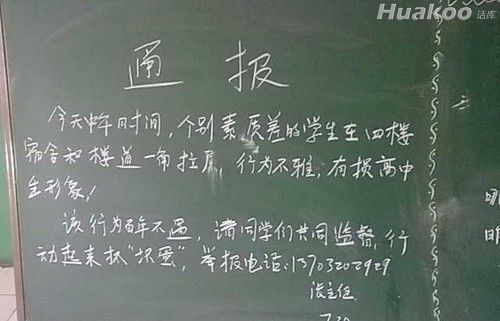 Huakoo 话库
通报
今天中午时间，个别素质差的学生在四楼
宿舍和楼道一角拉尿，行为不雅，有损高中
生形象！
该行为百年不遇，请同学们共同监督，行
动起来抓“坏蛋”，举报电话：13703202929
主任